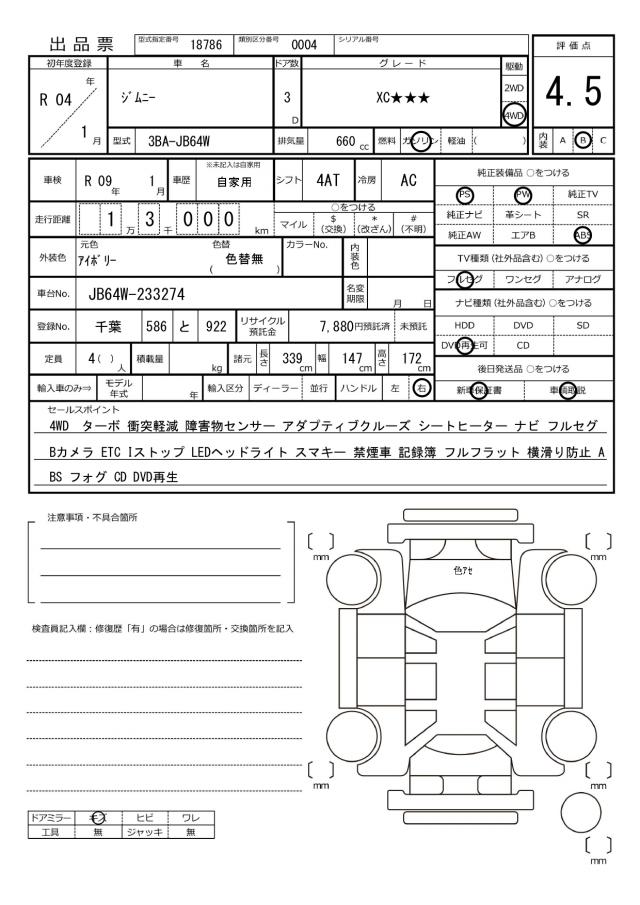 出品票 型式指定番号 18786 類別区分番号 0004 シリアル番号
評価点
4.5
内装 A B C
初年度登録 車名 ドア数 グレード 駆動
R 04 年 1 月 ジムニー 3 D XC★★★ 2WD 4WD
型式 3BA-JB64W 排気量 660 cc 燃料 ガソリン 軽油 ( )
車検 R 09 年 1 月 車歴 ※未記入は自家用 自家用 シフト 4AT 冷房 AC
走行距離 1 万 3 千 0 0 0 km ○をつける
マイル $(交換) *(改ざん) #(不明)
外装色 元色 アイボリー 色替 ( 色替無 ) カラーNo. 内装色
車台No. JB64W-233274 名変期限 月 日
登録No. 千葉 586 と 922 リサイクル預託金 7,880円預託済 未預託
定員 4( ) 人 積載量 kg 諸元 長さ 339 cm 幅 147 cm 高さ 172 cm
輸入車のみ⇒ モデル年式 年 輸入区分 ディーラー 並行 ハンドル 左 右
純正装備品 ○をつける
PS PW 純正TV
純正ナビ 革シート SR
純正AW エアB ABS
TV種類(社外品含む) ○をつける
フルセグ ワンセグ アナログ
ナビ種類(社外品含む) ○をつける
HDD DVD SD
DVD再生可 CD
後日発送品 ○をつける
新車保証書 車輌取説
セールスポイント
4WD ターボ 衝突軽減 障害物センサー アダプティブクルーズ シートヒーター ナビ フルセグ
Bカメラ ETC Iストップ LEDヘッドライト スマキー 禁煙車 記録簿 フルフラット 横滑り防止 A
BS フォグ CD DVD再生
注意事項・不具合箇所
検査員記入欄：修復歴「有」の場合は修復箇所・交換箇所を記入
〔 〕mm
〔 〕mm
色アセ
〔 〕mm
〔 〕mm
〔 〕mm
ドアミラー キズ ヒビ ワレ
工具 無 ジャッキ 無